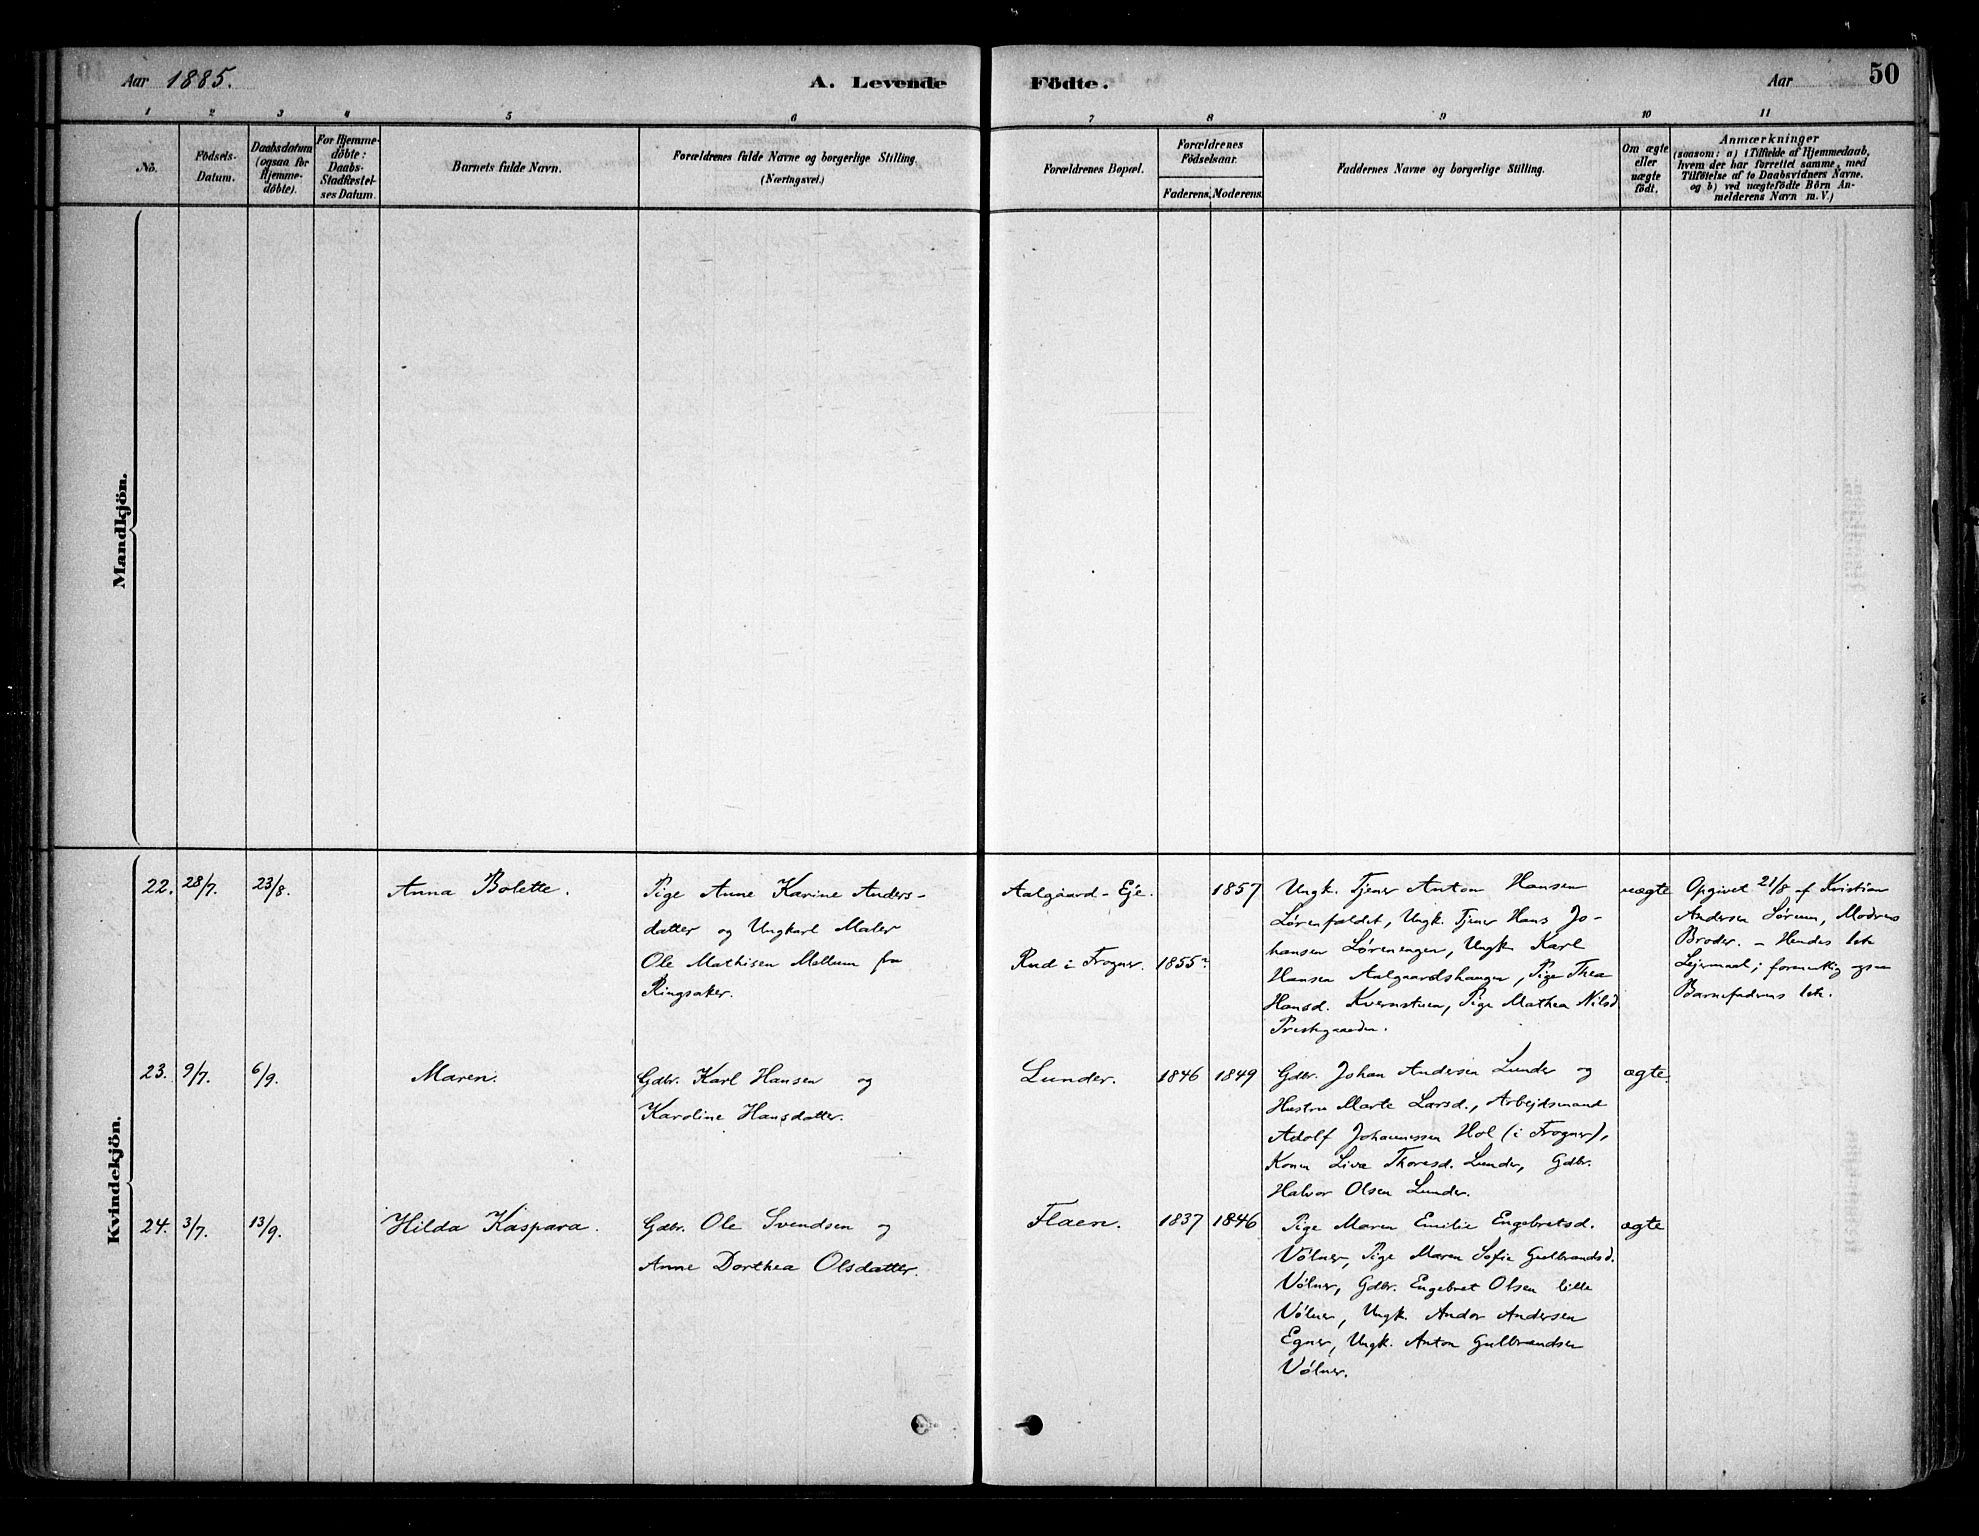 Aar 1885.
A. Levende Födte.
Aar
50
1 2 3 4 5 6 7 8 9 10 11
No.
Födsels-
Datum.
Daabsdatum
(ogsaa for
Hjemme-
döbte).
For Hjemme-
döbte:
Daabs-
Stadfæstel-
ses Datum.
Barnets fulde Navn.
Forældrenes fulde Navne og borgerlige Stilling.
(Næringsvei.)
Forældrenes Bopæl.
Forældrenes
Födselsaar.
Faderens. Moderens.
Faddernes Navne og borgerlige Stilling.
Om ægte
eller
uægte
födt.
Anmærkninger
(saasom: a) i Tilfælde af Hjemmedaab,
hvem der har forrettet samme, med
Tilföielse af to Daabsvidners Navne.
og b) ved uægtefödte Börn An-
melderens Navn m. V.)
Mandkjön.
Kvindekjön.
22. 28/7. 23/8.
Anna Bolette.
Pige Anne Karine Anders-
datter og Ungkarl Maler
Ole Mathisen Mellum fra
Ringsaker.
Aalgaard-Eje.
Rud i Frogner.
1855
1857
Ungk. Tjener Anton Hansen
Lørenfaldet, Ungk. Tjener Hans Jo-
hansen Lørenengen, Ungk. Karl
Hansen Aalgaardshaugen, Pige Thea
Hansd. Kvernstuen, Pige Mathea Nilsd.
Prestegaarden.
uægte
Opgivet 21/8 af Kristian
Andersen Sørum, Modrens
Broder. – Hendes 1ste
Lejermaal; formentlig ogsaa
Barnefaderens 1ste.
23. 9/7. 6/9.
Maren.
Gdbr. Karl Hansen og
Karoline Hansdatter.
Lunder. 1846 1849
Gdbr. Johan Andersen Lunder og
Hustru Marte Larsd., Arbejdsmand
Adolf Johannessen Hol (i Frogner),
Kone Live Thoresd. Lunder, Gdbr.
Halvor Olsen Lunder.
ægte.
24. 3/7. 13/9.
Hilda Kaspara.
Gdbr. Ole Svendsen og
Anne Dorthea Olsdatter.
Flaen. 1837 1846
Pige Maren Emilie Engebretsd.
Vølner, Pige Maren Sofie Gulbrandsd.
Vølner, Gdbr. Engebret Olsen lille
Vølner, Ungk. Andor Andersen
Egner, Ungk. Anton Gulbrandsen
Vølner.
ægte